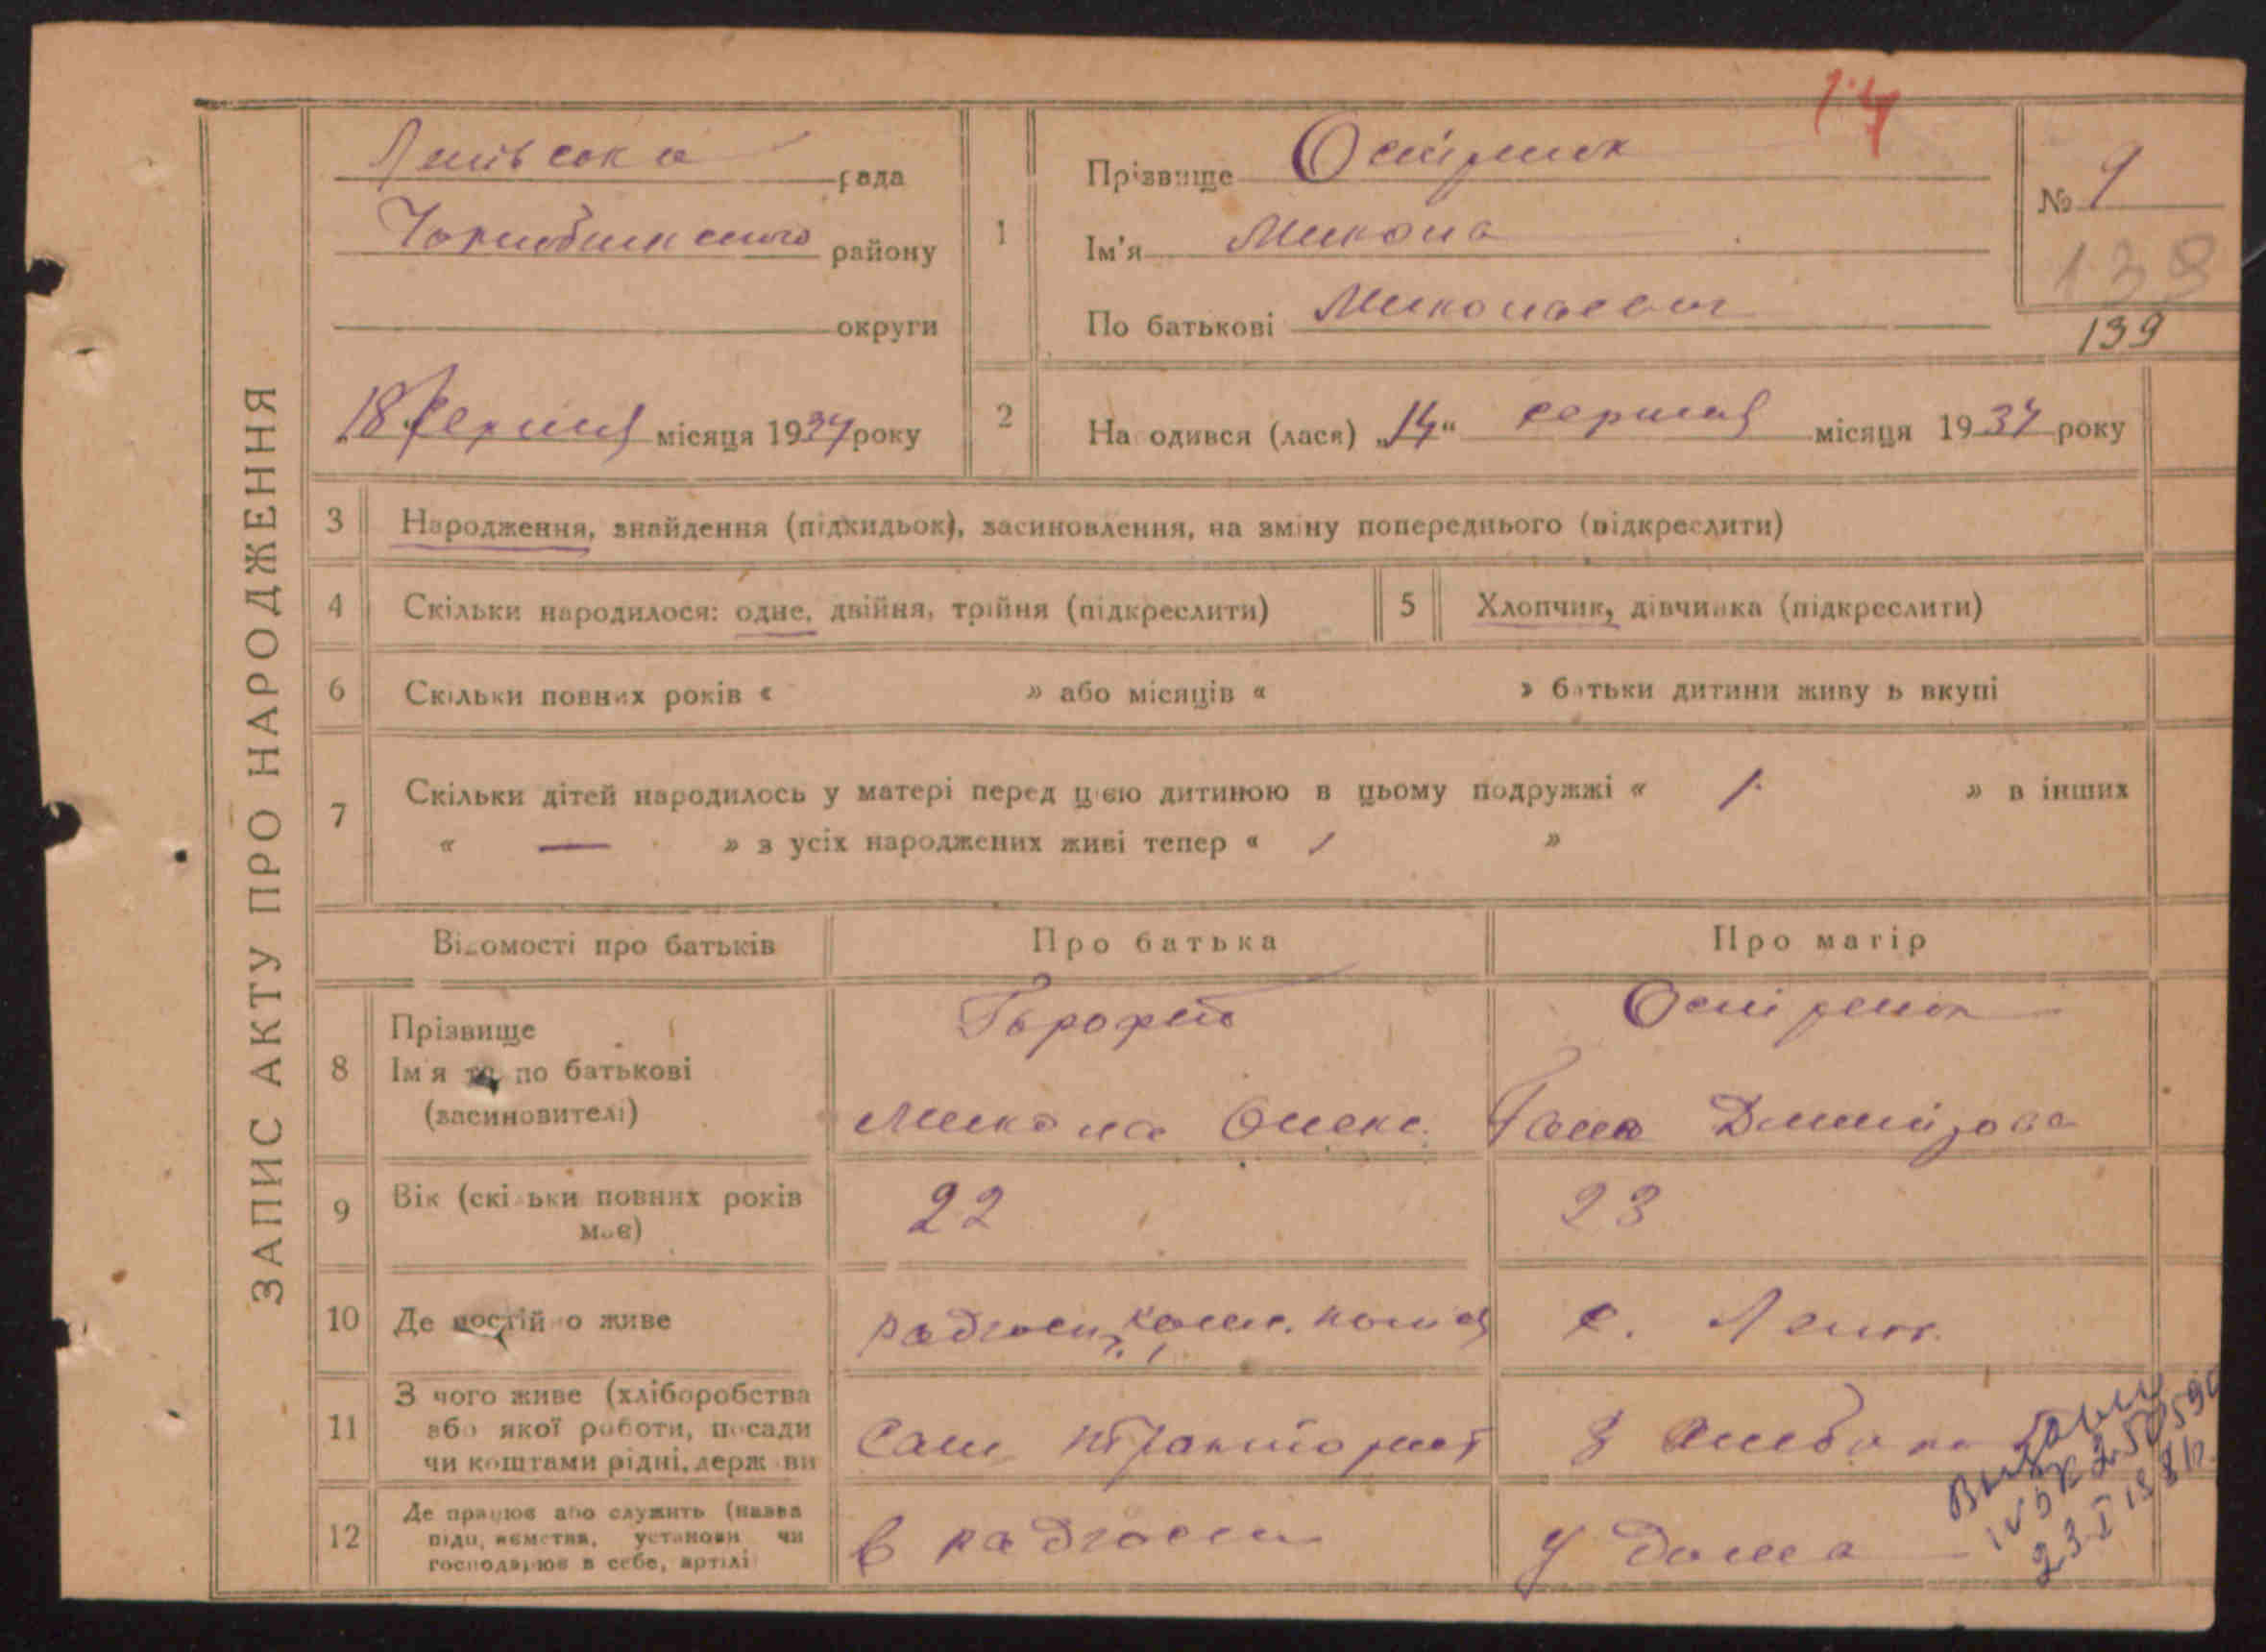 ЗАПИС АКТУ ПРО НАРОДЖЕННЯ
рада
району
округи
18 серпня місяця 1934 року
1
Прізвище
Ім'я Микола
По батькові Миколаевич
№ 9
138
139
2
На одився (лася) „14“ серпня місяця 1934 року
3 Народження, знайдення (підкидьок), засиновлення, на зміну попереднього (підкреслити)
4 Скільки народилося: одне, двійня, трійня (підкреслити)
5 Хлопчик, дівчинка (підкреслити)
6 Скільки повних років « » або місяців « » батьки дитини живу ь вкупі
7 Скільки дітей народилось у матері перед цією дитиною в цьому подружжі « 1 » в інших
« — » з усіх народжених живі тепер « 1 »
Відомості про батьків
Про батька
Про матір
8 Прізвище
Ім'я та по батькові
(засиновителі)
Микола Олекс.
Дмитрова
9 Вік (скільки повних років
має)
22
23
10 Де постійно живе
с.
11 З чого живе (хліборобства
або якої роботи, посади
чи коштами рідні, держ ви
тракторист
12 Де працює або служить (назва
підп, ємства, установи чи
господарює в себе, артілі
в радгоспі
у дома